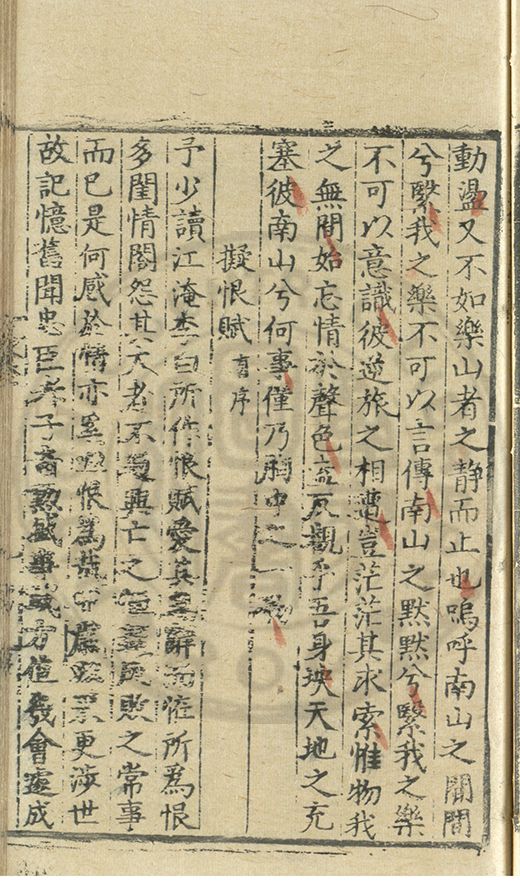 動盪又不如樂山者之靜而止也嗚呼南山之
兮繄我之樂不可以言傳南山之黙黙兮繄我之樂
不可以意識彼逆旅之相遭豈茫茫其求索惟物我
之無間始忘情於聲色盍反觀乎吾身坱天地之充
塞彼南山兮何事僅乃胸中之一
擬恨賦 有序
予少讀江淹李白所作恨賦愛其辭而恠所為恨
多閨情閤怨其大者不過興亡之敗之常事
而已是何感於情亦奚恨為哉更涉世
故記憶舊聞忠臣孝子奇勲盛事或方值機會遽成